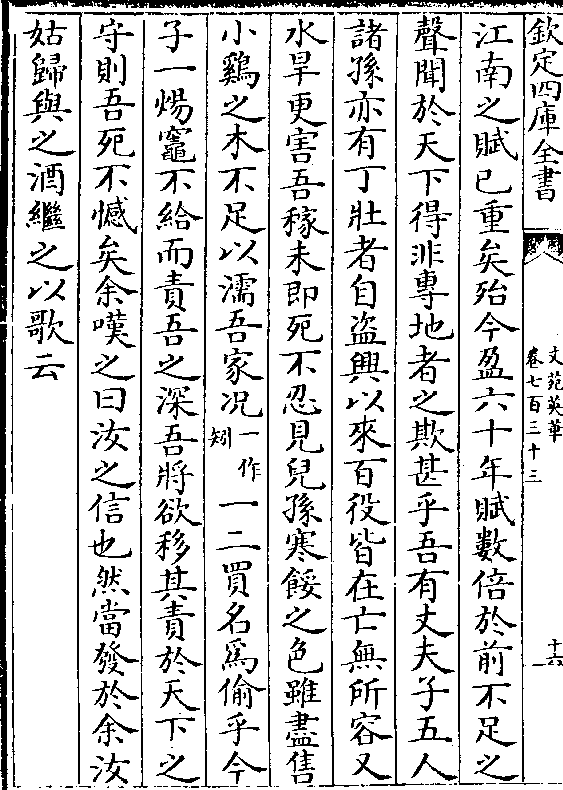 欽定四庫全書
文苑英華
卷七百三十三
十六
江南之賦已重矣殆今盈六十年賦數倍於前不足之
聲聞於天下得非專地者之欺甚乎吾有丈夫子五人
諸孫亦有丁壯者自盗興以來百役皆在亡無所容又
水旱更害吾稼未即死不忍見兒孫寒餒之色雖盡售
小雞之木不足以濡吾家况一作矧一二買名爲偷乎今
子一煬竈不給而責吾之深吾將欲移其責於天下之
守則吾死不憾矣余嘆之曰汝之信也然當發於余汝
姑歸與之酒繼之以歌云